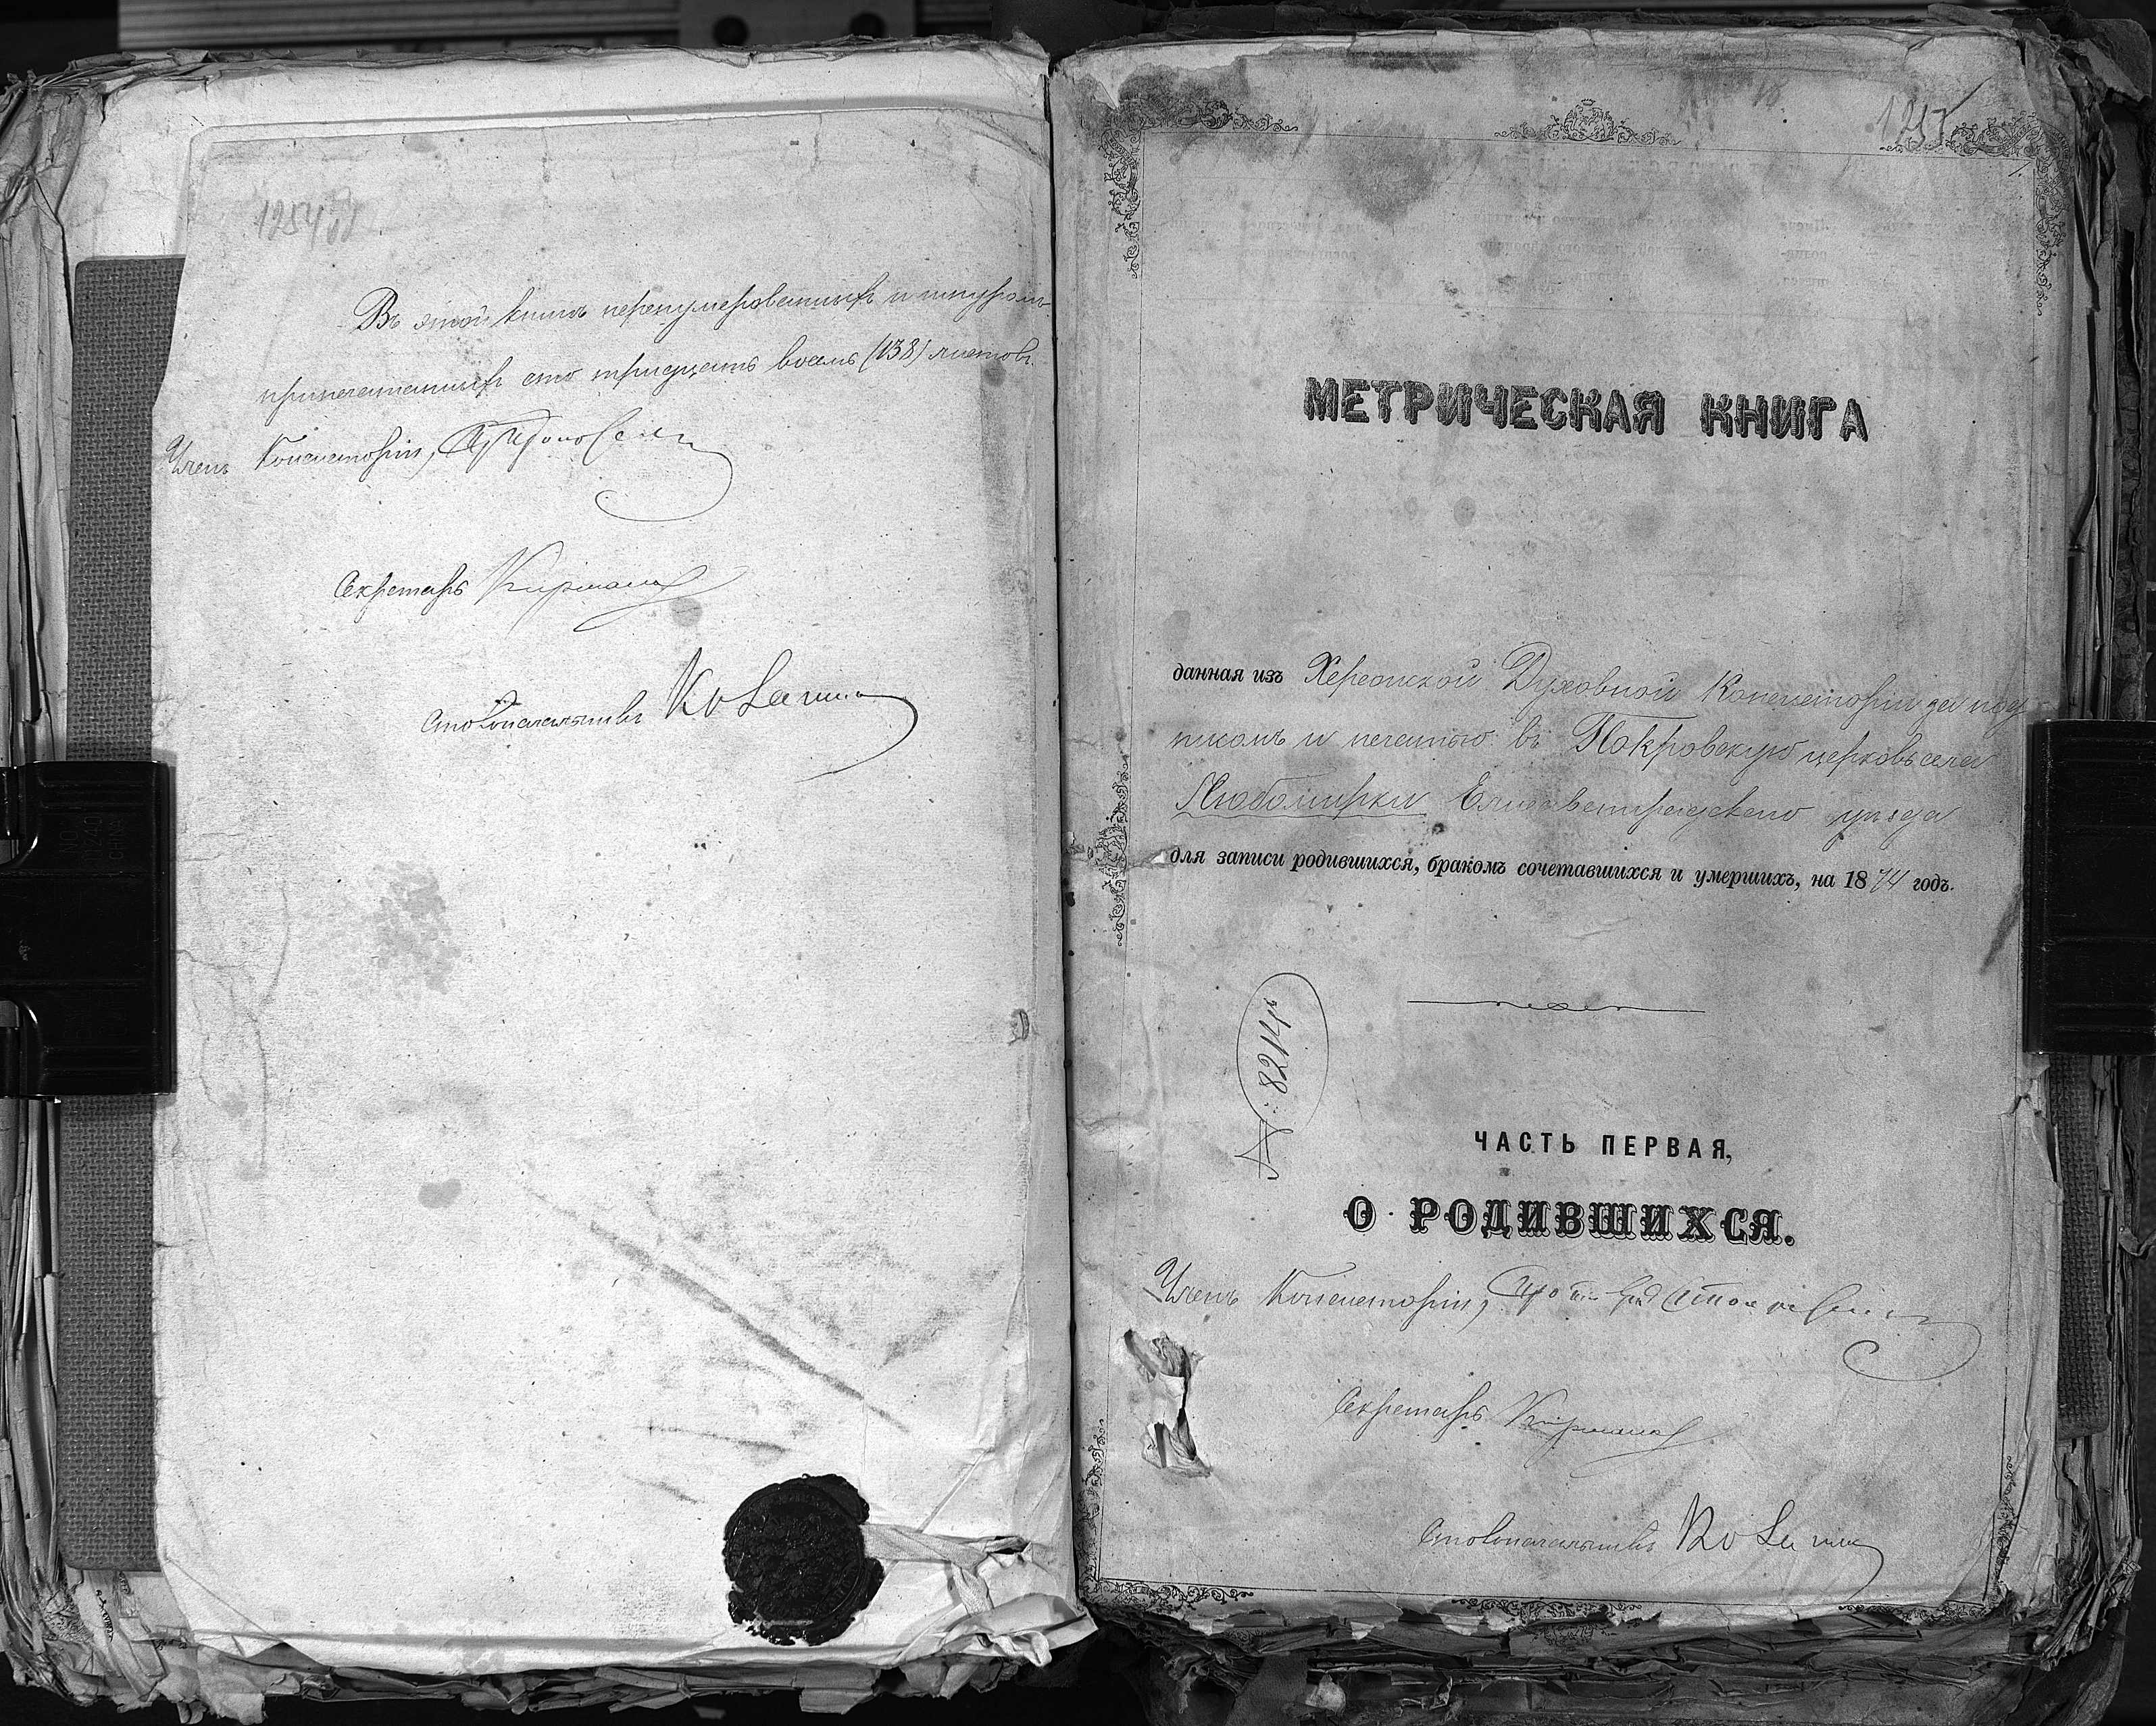 Въ этой книгѣ перенумерованныхъ и шнуром
припечатанныхъ сто тридцать восемь (138) листовъ.
Членъ Консисторіи,
Секретарь
Столоначальникъ
МЕТРИЧЕСКАЯ КНИГА
данная изъ Херсонской Духовной Консисторіи за
и печатью въ Покровскую церковь села
Любомирки Елисаветградскаго уѣзда
для записи родившихся, бракомъ сочетавшихся и умершихъ, на 1874 годъ.
№: 8214
ЧАСТЬ ПЕРВАЯ,
О РОДИВШИХСЯ.
Членъ Консисторіи,
Секретарь
Столоначальникъ